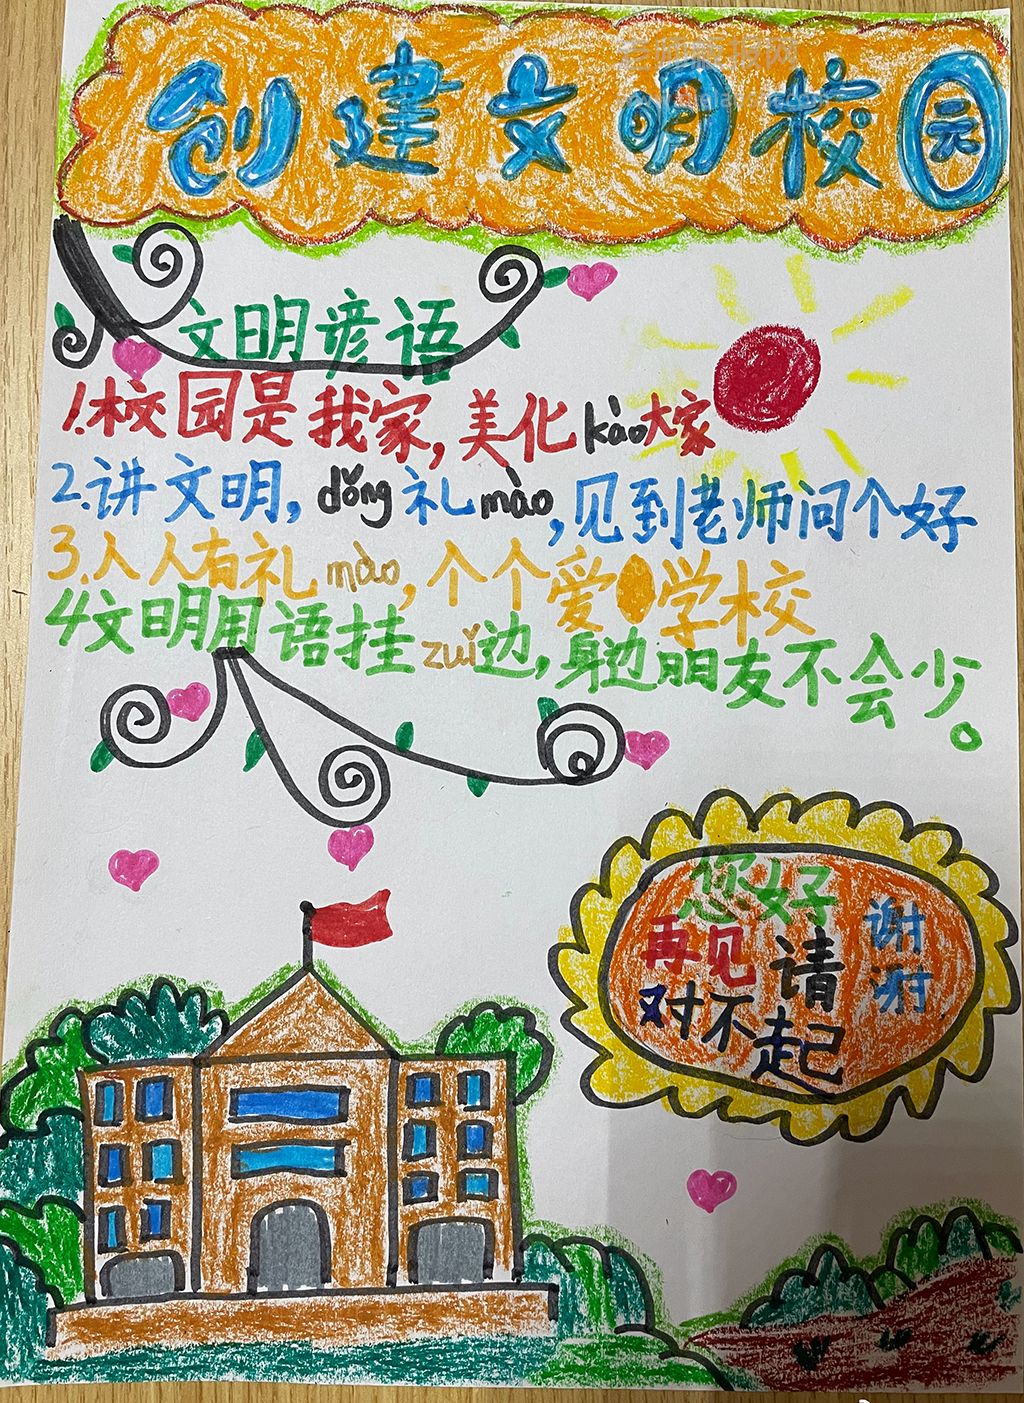 创建文明校园
文明谚语
1.校园是我家,美化kào大家
2.讲文明,dǒng礼mào,见到老师问个好
3.人人有礼mào,个个爱学校
4文明用语挂zuǐ边,身边朋友不会少。
您好
再见 请 谢谢
对不起